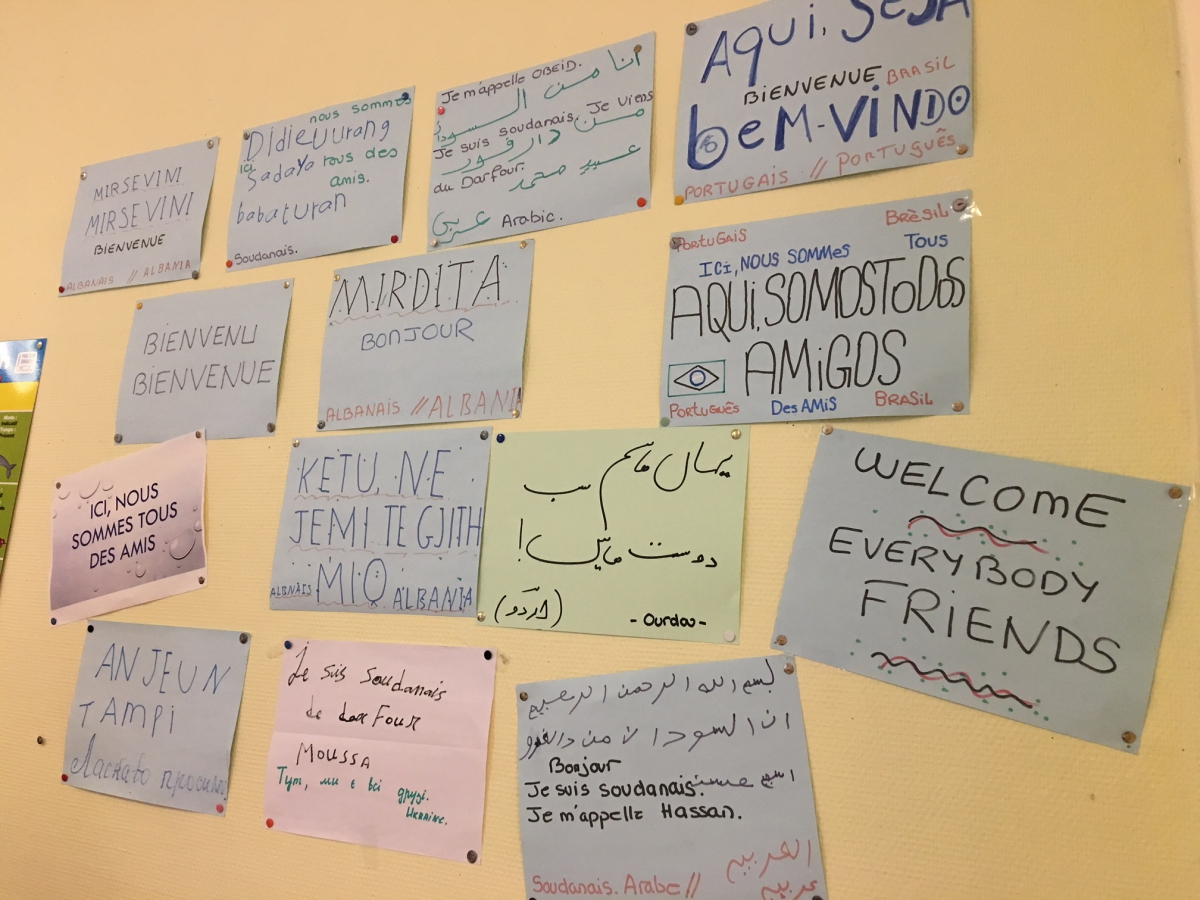 MIRSEVINI
MIRSEVINI
BIENVENUE
ALBANAIS // ALBANIA
nous sommes
Didieuurang
ici
Sadaya tous des
amis.
babaturan
Soudanais.
Je m'appelle OBEID.
انا من السودان
Je suis soudanais. Je viens
من دارفور
du Darfour.
عبيد محمد
عربي Arabic.
AQUI, SEJA
BIENVENUE BRASIL
beM-VINDO
PORTUGAIS // PORTUGUÊS
BIENVENU
BIENVENUE
MIRDITA
BONJOUR
ALBANAIS // ALBANI
PORTUGAIS Brèsil
ICi, NOUS SOMMeS Tous
AQUI, SOMOS ToDoS
AMiGOS
PORTUGUÊS Des AMiS BRASIL
ICI, NOUS
SOMMES TOUS
DES AMIS
KETU, NE
JEMI TE GJITH
MIQ
ALBNAIS ALBANIA
یہاں ہم سب
دوست ہیں!
(اردو) - Ourdou -
WELCOME
EVERYBODY
FRiENDS
ANJEUN
TAMPI
Ласкаво просимо
Je suis soudanais
de darFour
MOUSSA
Тут, ми є всі друзі.
UKRAINE.
بسم الله الرحمن الرحيم
Bonjour
Je suis soudanais.
Je m'appelle Hassan.
العربيه
Soudanais. Arabe //
عربيه